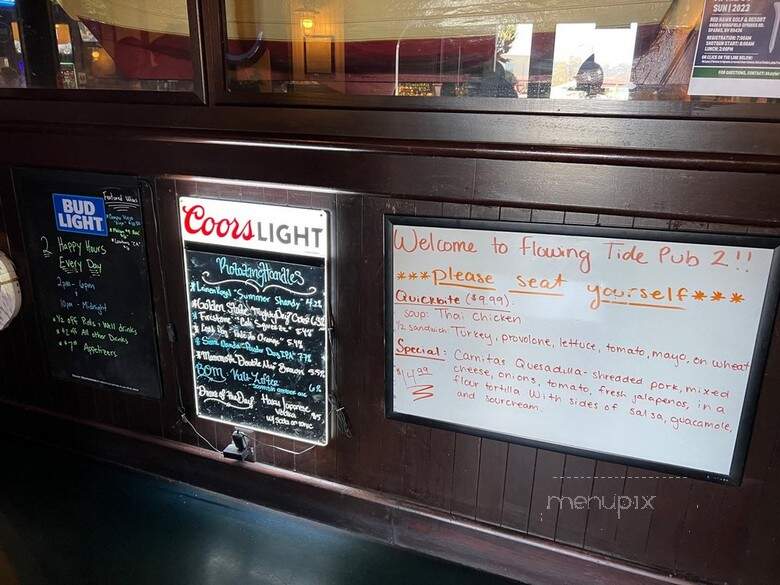 SUN | 2023
RED HAWK GOLF & RESORT
SPARKS, NV 89436
REGISTRATION: 7:00AM
SHOTGUN START: 8:00AM
LUNCH: 2:00PM
OR CLICK ON THE LINK BELOW!
FOR QUESTIONS, CONTACT:
BUD
LIGHT
Featured Wines
2 Happy Hours
Every Day
2pm - 6pm
10pm - Midnight
1/2 off Well drinks
off All other Drinks
Appetizers
Coors LIGHT
Rotating Handles
"Summer Shandy" 4.2%
Golden State
Firestone
5.4%
7.7%
Mammoth Double Nut Brown 5.5%
BOM
6%
of the Day: Hazy Japanese
Vodka
w/ soda or tonic
Welcome to Flowing Tide Pub 2!!
***please seat yourself***
Quickbite ($9.99):
Soup: Thai Chicken
1/2 sandwich Turkey, provolone, lettuce, tomato, mayo, on wheat
Special: Carnitas Quesadilla - shredded pork, mixed
$14.99 cheese, onions, tomato, fresh jalapenos, in a
flour tortilla with sides of salsa, guacamole,
and sourcream.
menupix